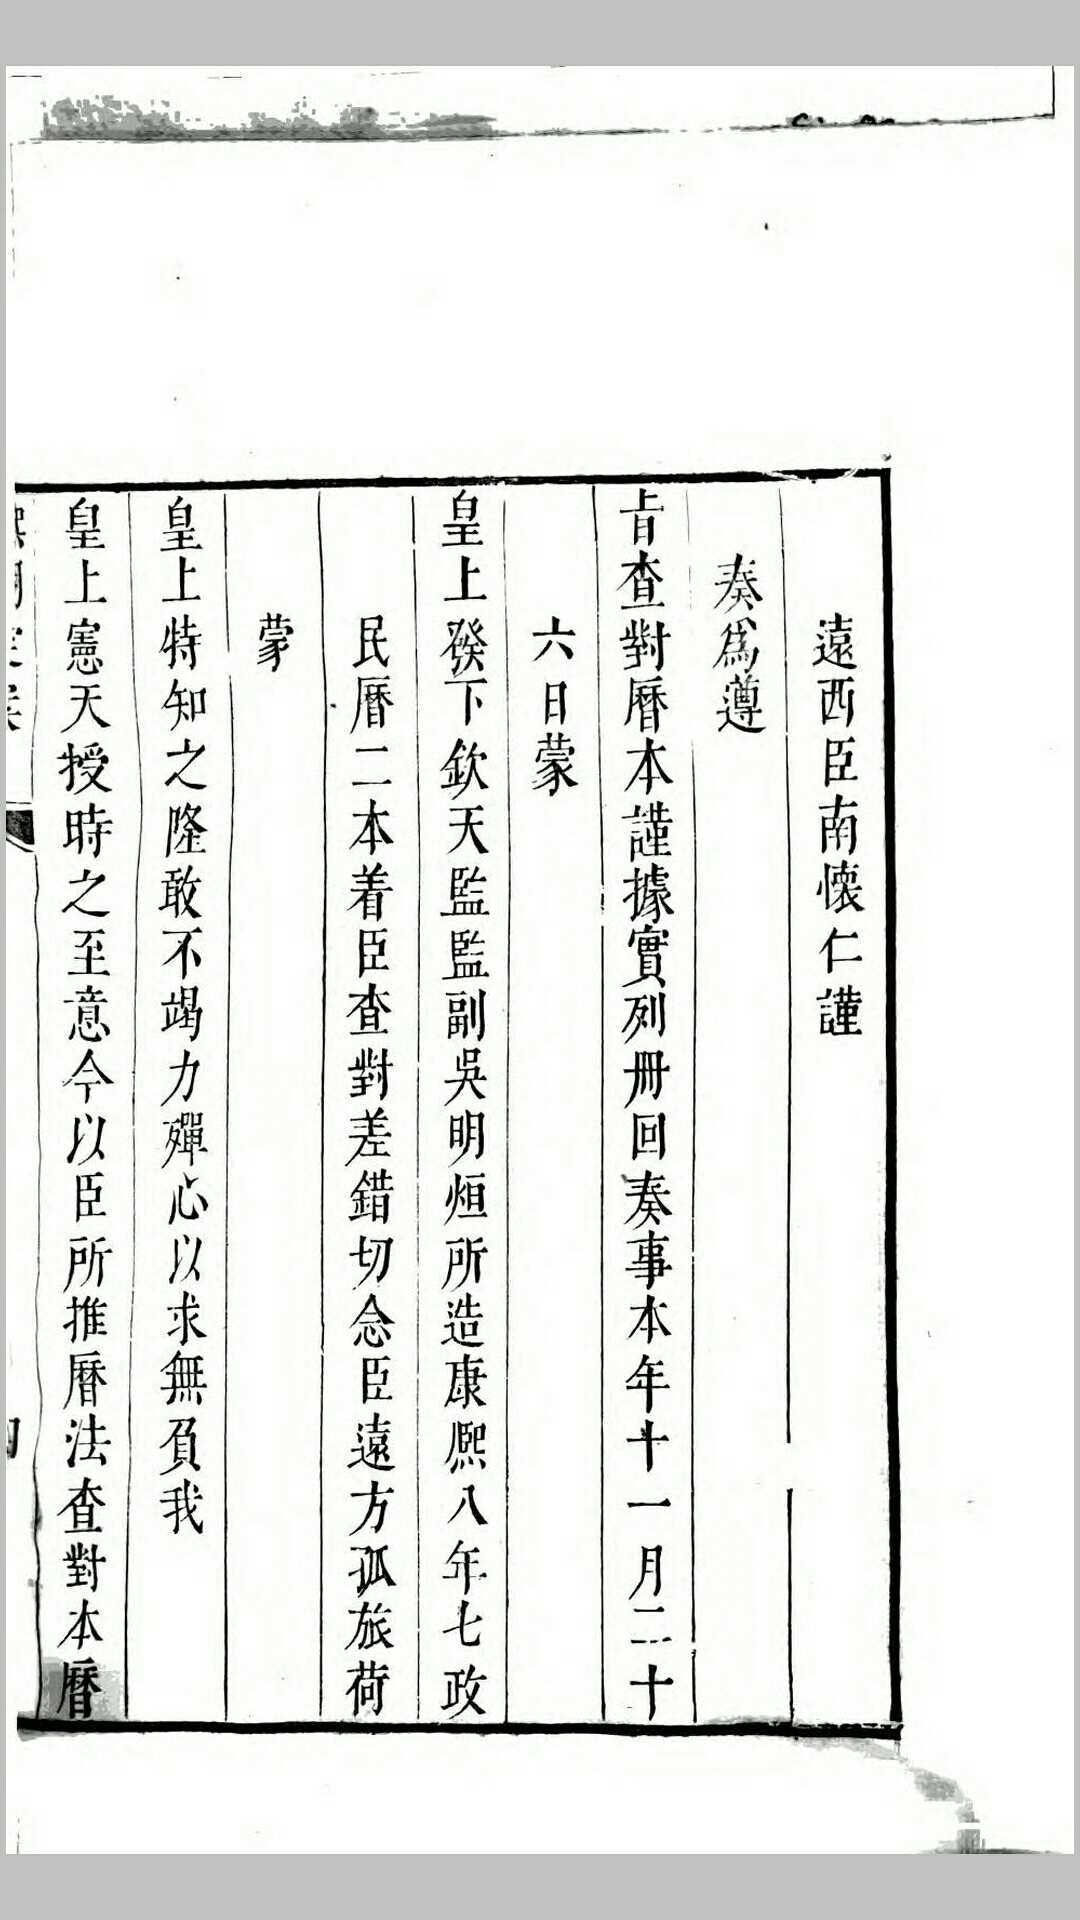 遠西臣南懷仁謹
奏爲遵
旨查對曆本謹據實列冊回奏事本年十一月二十
六日蒙
皇上發下欽天監監副吳明烜所造康熈八年七政
民曆二本着臣查對差錯切念臣遠方孤旅荷
蒙
皇上特知之隆敢不竭力殫心以求無負我
皇上憲天授時之至意今以臣所推曆法查對本曆